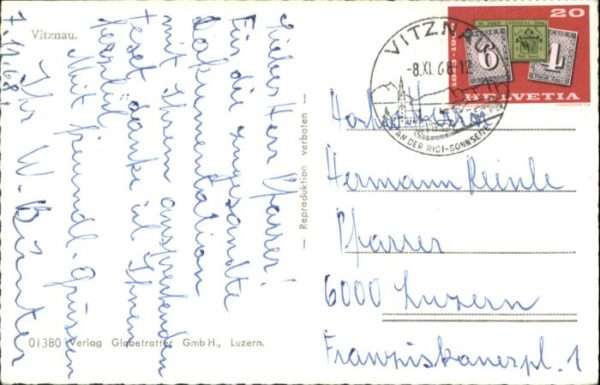 Vitznau.
7.11.68
Lieber Herr Pfarrer!
Für die zugesandte
Dokumentation
mit Ihrem ansprechenden
Text danke ich Ihnen
herzlich.
Mit freundl. Grüssen
Ihr W. Bünter
01380 Verlag Globetrotter GmbH., Luzern.
— Reproduktion verboten —
VITZNAU
-8.XI.68-12
AN DER RIGI-SONNSEITE
20
1843-1968
6
4
HELVETIA
Herrn
Hermann Reinle
Pfarrer
6000 Luzern
Franziskanerpl. 1